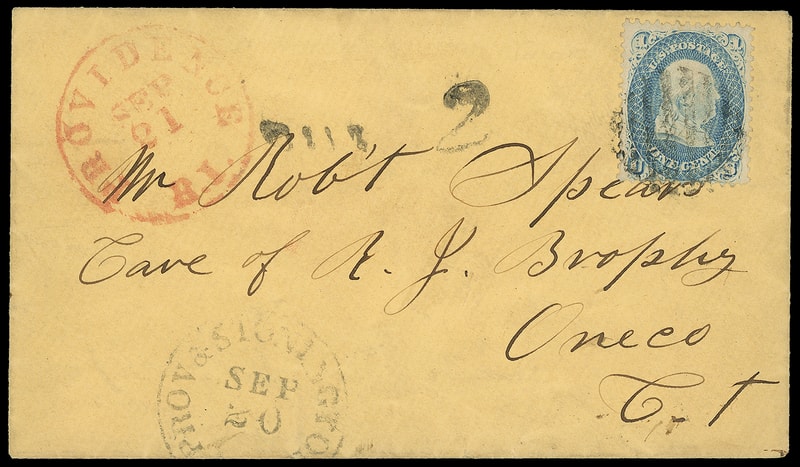 PROVIDENCE
SEP
21
R.I.
2
1 U.S. POSTAGE 1
ONE CENT
Mr Rob't Spears
Care of R. J. Brophy
Oneco
C-t
PROV & STONINGTON
SEP
20